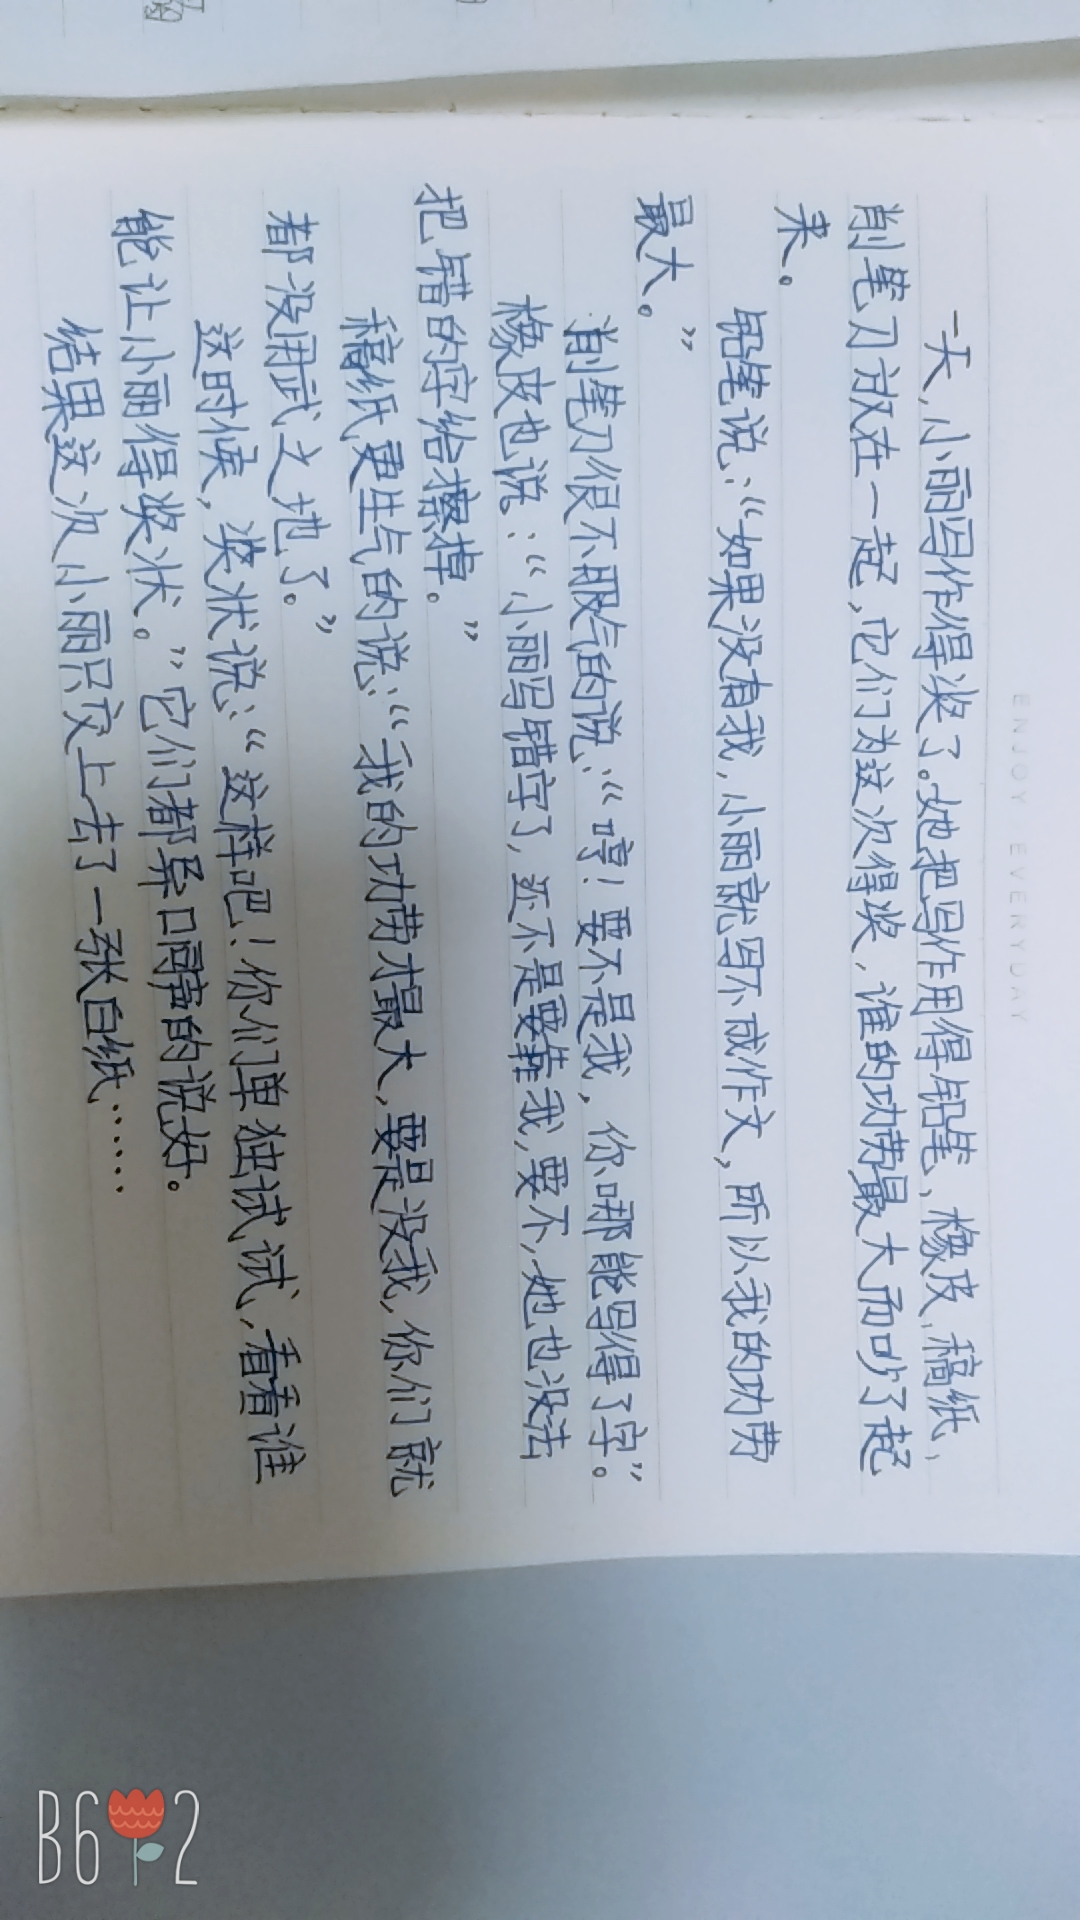 ENJOY EVERYDAY
一天,小丽写作得奖了。她把写作用得铅笔、橡皮、稿纸、
削笔刀放在一起,它们为这次得奖、谁的功劳最大而吵了起
来。
铅笔说:“如果没有我,小丽就写不成作文,所以我的功劳
最大。”
削笔刀很不服气的说:“哼!要不是我,你哪能写得了字。”
橡皮也说:“小丽写错字了,还不是要靠我,要不,她也没法
把错的字给擦掉。”
稿纸更生气的说:“我的功劳才最大,要是没我,你们就
都没用武之地了。”
这时候,奖状说:“这样吧!你们单独试试,看看谁
能让小丽得奖状。”它们都异口同声的说好。
结果这次小丽只交上去了一张白纸……
B6 2